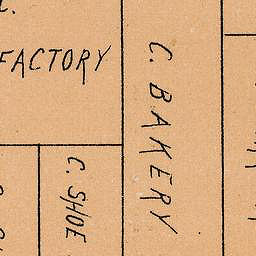 FACTORY
C. BAKERY
C. SHOE